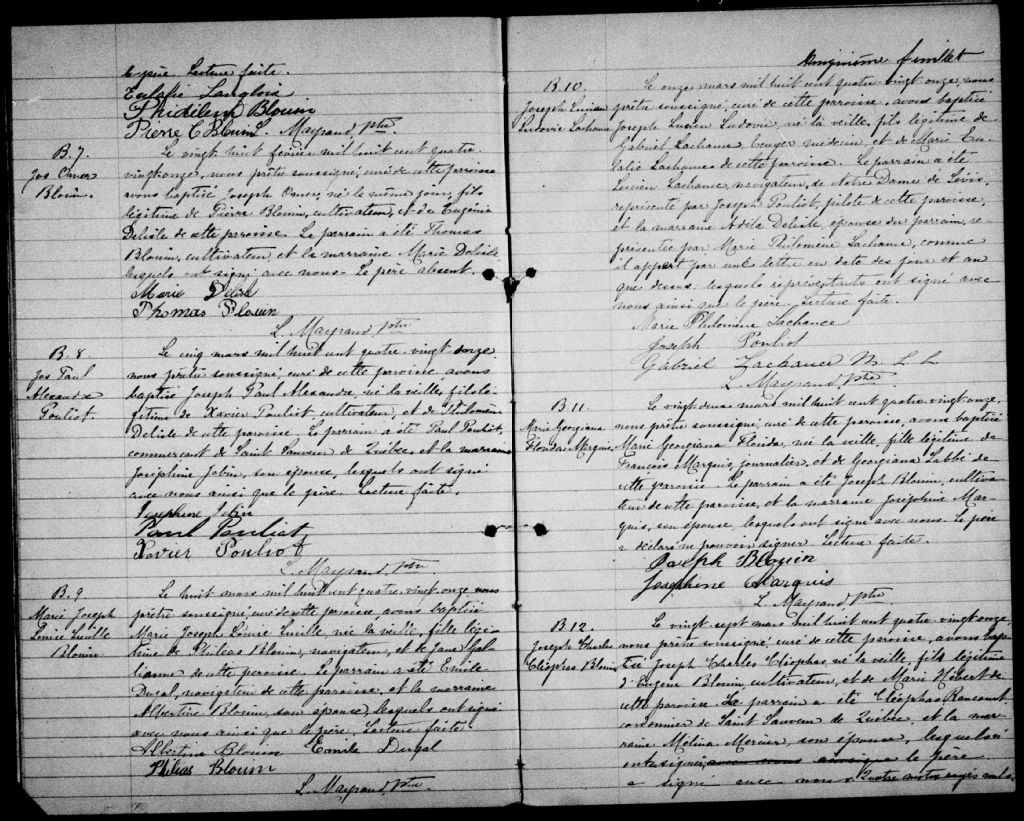 le père. Lecture faite.
Eulalie Langlois
Phidélem Blouin
Pierre C Blouin L. Mayrand, ptre
B. 7.
Jos Omer
Blouin.
Le vingt huit février mil huit cent quatre
vingt onze, nous prêtre soussigné, curé de cette paroisse
avons baptisé Joseph Omer, né le même jour, fils
légitime de Pierre Blouin, cultivateur, et de Eugénie
Delisle de cette paroisse. Le parrain a été Thomas
Blouin, cultivateur et la marraine Marie Delisle
lesquels ont signé avec nous. Le père absent.
Marie Delisle
Thomas Blouin
L. Mayrand, ptre
B. 8
Jos Paul
Alexandre
Pouliot.
Le cinq mars mil huit cent quatre-vingt onze
nous prêtre soussigné, curé de cette paroisse avons
baptisé Joseph Paul Alexandre, né la veille, fils lé
gitime de Xavier Pouliot, cultivateur, et de Philomène
Delisle de cette paroisse. Le parrain a été Paul Pouliot,
commerçant de Saint Sauveur de Québec, et la marraine
Joséphine Jobin, son épouse, lesquels ont signé
avec nous ainsi que le père. Lecture faite.
Josephine Jobin
Paul Pouliot
Xavier Pouliot
L. Mayrand, ptre
B. 9
Marie Joseph
Louise Luville
Blouin
Le huit mars mil huit cent quatre vingt onze nous
prêtre soussigné, curé de cette paroisse avons baptisé
Marie Joseph Louise Luville née la veille, fille légi-
time de Philéas Blouin, navigateur, et de Jane
de cette paroisse. Le parrain a été Emile
Dugal, navigateur de cette paroisse, et la marraine
Albertine Blouin, son épouse, lesquels ont signé
avec nous ainsi que le père. Lecture faite.
Albertina Blouin Emile Dugal
Philéas Blouin
L. Mayrand, ptre
feuillet
B. 10
Joseph Lucien
Ludovic Lachance
Le onze mars mil huit cent quatre vingt onze, nous
prêtre soussigné, curé de cette paroisse, avons baptisé
Joseph Lucien Ludovic, né la veille, fils légitime de
Gabriel Lachance, Ecuyer médecin, et de Marie Eu-
lalie Lachance de cette paroisse. Le parrain a été
Lucien Lachance, navigateur, de Notre Dame de Lévis,
représenté par Joseph Pouliot, pilote de cette paroisse,
et la marraine Adéla Delisle, épouse du parrain, re-
présentée par Marie Philomène Lachance, comme
il appert par une lettre en date des jour et an
que dessus. lesquels représentants ont signé avec
nous ainsi que le père. Lecture faite.
Marie Philomène Lachance
Joseph Pouliot
Gabriel Lachance M. L. L
L. Mayrand, ptre
B. 11
Marie Georgiana
Florida Marquis.
Le vingt deux mars mil huit cent quatre vingt onze,
nous prêtre soussigné, curé de cette paroisse, avons baptisé
Marie Georgiana Florida, née la veille, fille légitime de
François Marquis, journalier, et de Georgiana Labbé de
cette paroisse. Le parrain a été Joseph Blouin, cultiva-
teur de cette paroisse, et la marraine Joséphine Mar-
quis, son épouse, lesquels ont signé avec nous. Le père
a déclaré ne pouvoir signer. Lecture faite.
Joseph Blouin
Josephine Marquis
L. Mayrand ptre
B. 12
Joseph Charles
Cléophas Blouin
Le vingt sept mars mil huit cent quatre vingt onze,
nous prêtre soussigné, curé de cette paroisse, avons bap-
tisé Joseph Charles Cléophas, né la veille, fils légitime
d'Eugène Blouin, cultivateur, et de Marie Hébert de
cette paroisse. Le parrain a été Cléophas Rancourt
cordonnier de Saint Sauveur de Québec, et la mar-
raine Mélina Mercier, son épouse, lesquels
ont signé, avec nous ainsi que le père
a signé avec nous. Quatre mots rayés nuls.